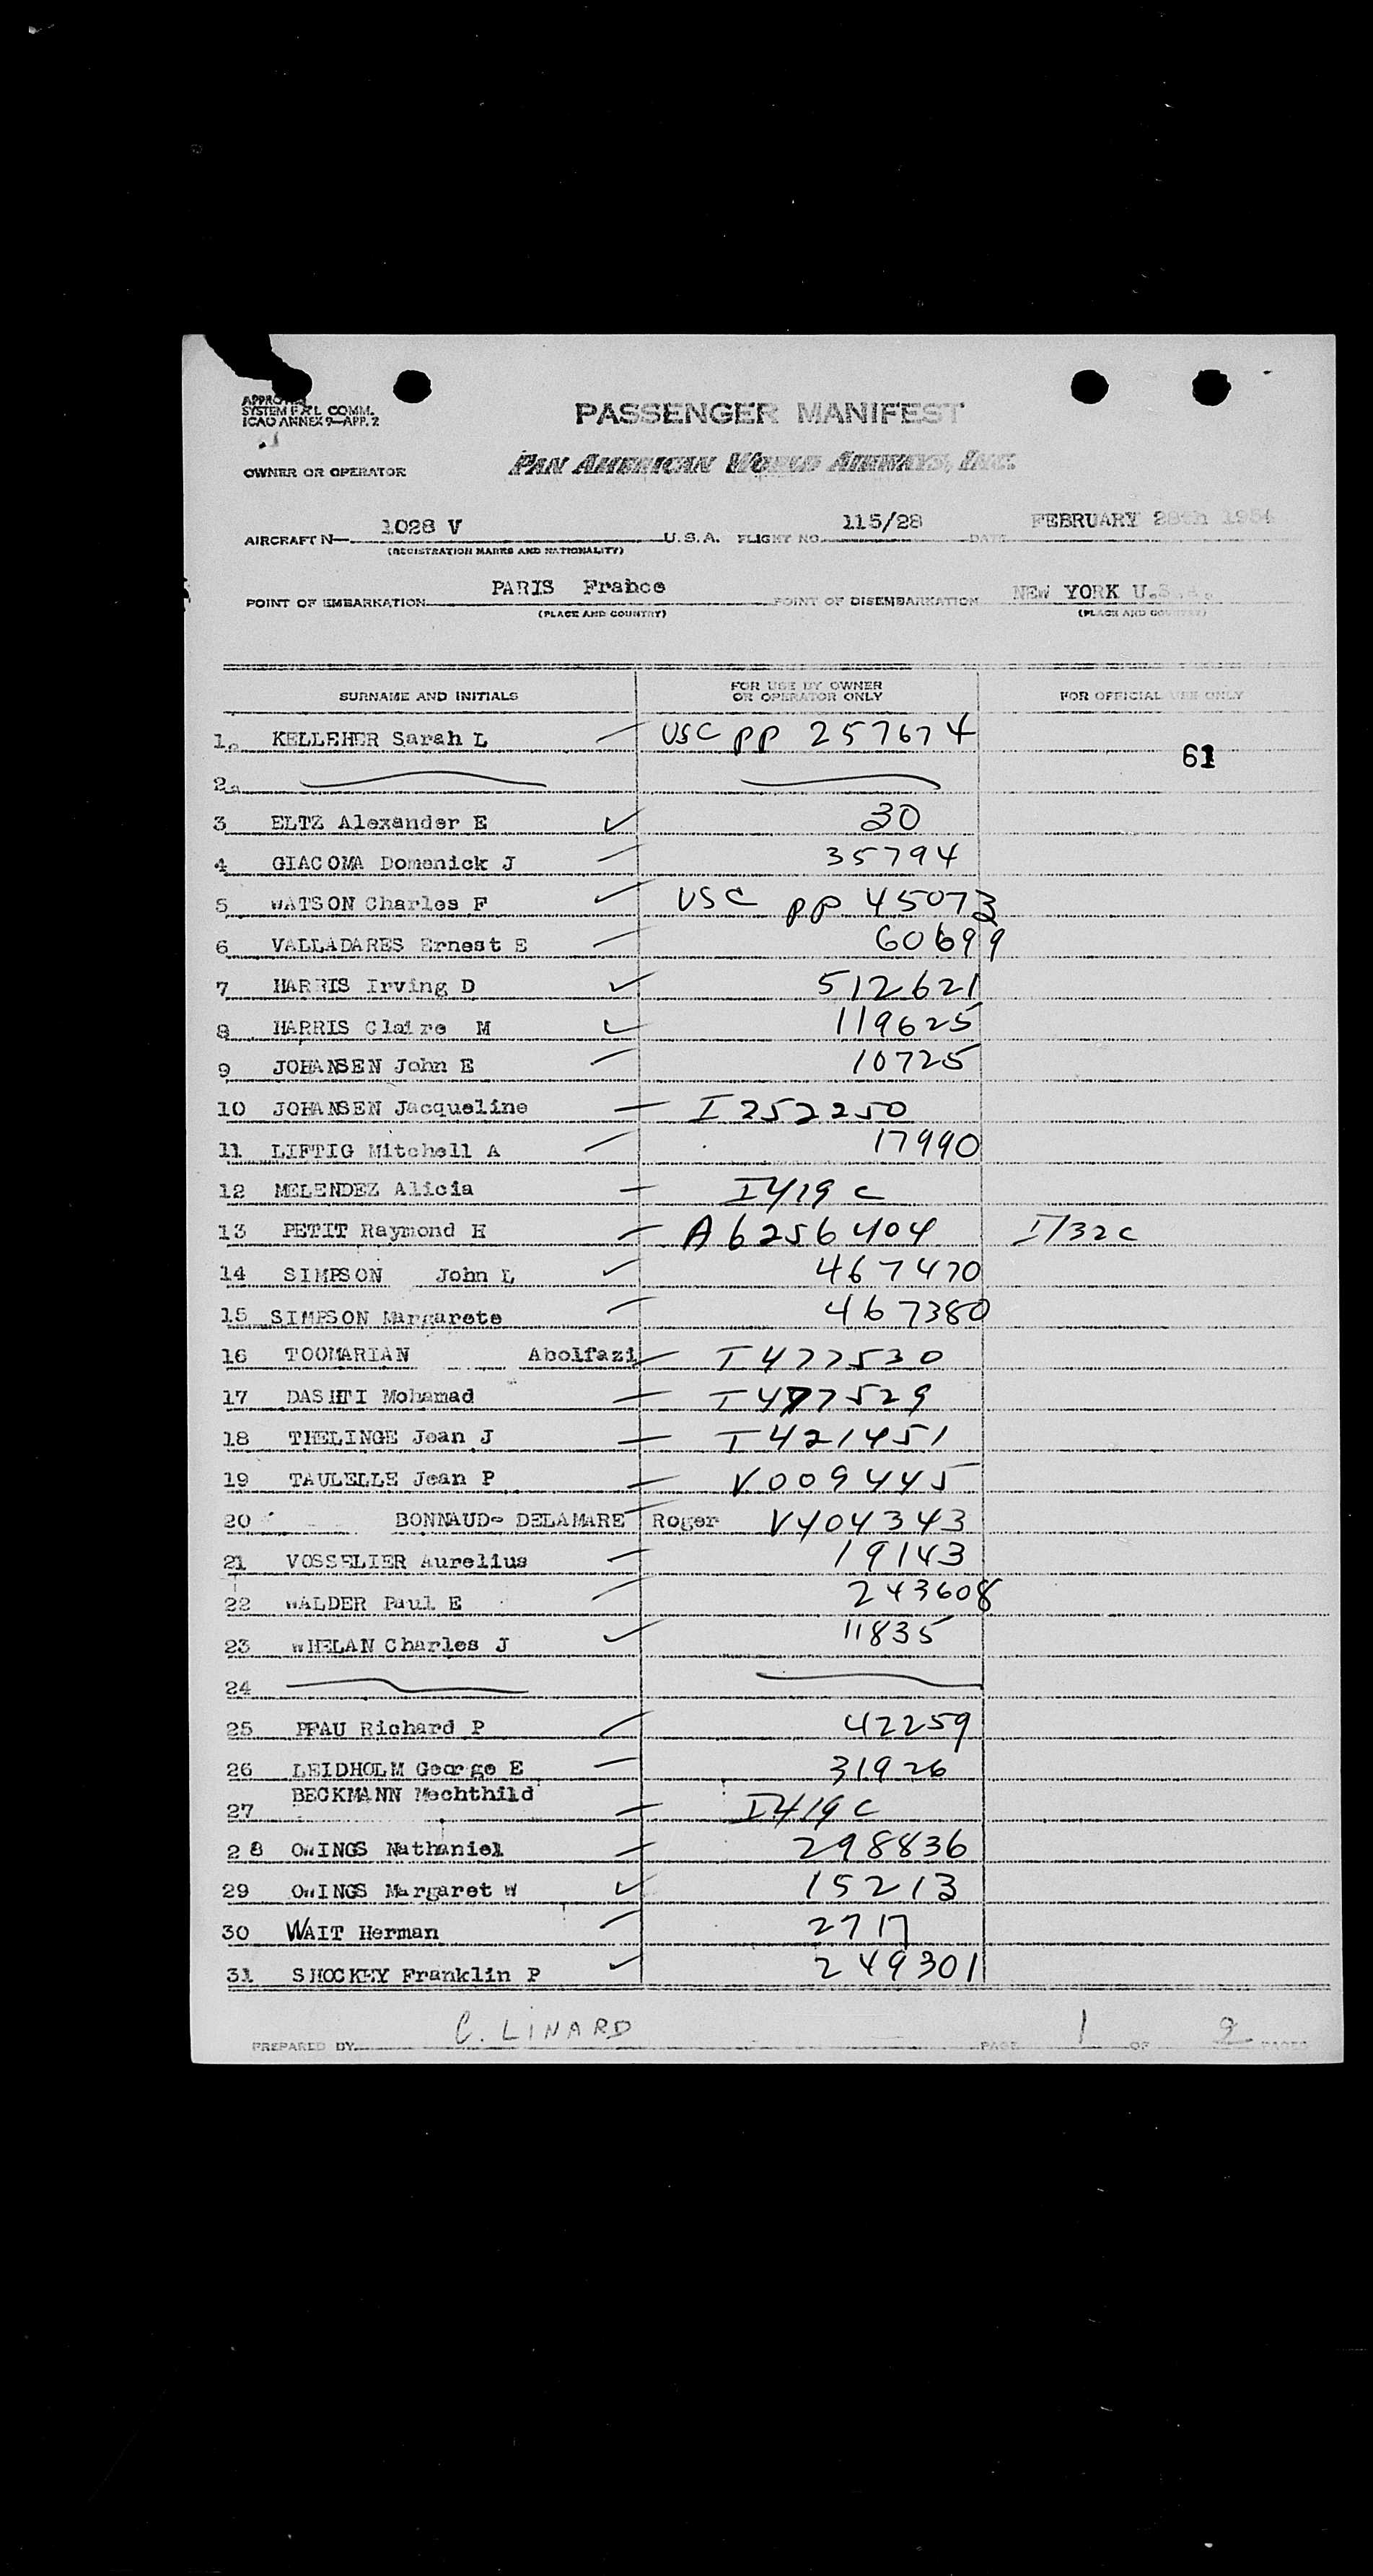 APPRO
SYSTEM F&L COMM.
ICAO ANNEX 9—APP. 2
PASSENGER MANIFEST
OWNER OR OPERATOR PAN AMERICAN WORLD AIRWAYS, INC.
AIRCRAFT N— 1028 V U.S.A. FLIGHT NO. 115/28 DATE FEBRUARY 28th 1954
(REGISTRATION MARKS AND NATIONALITY)
POINT OF EMBARKATION PARIS Frahce POINT OF DISEMBARKATION NEW YORK U.S.A.
(PLACE AND COUNTRY) (PLACE AND COUNTRY)
SURNAME AND INITIALS FOR USE BY OWNER OR OPERATOR ONLY FOR OFFICIAL USE ONLY
1. KELLEHER Sarah L USC PP 257674
61
2.
3 ELTZ Alexander E 30
4 GIACOMA Domenick J 35794
5 WATSON Charles F USC PP 45073
6 VALLADARES Ernest E 60699
7 HARRIS Irving D 512621
8 HARRIS Claire M 119625
9 JOHANSEN John E 10725
10 JOHANSEN Jacqueline I 252250
11 LIFTIG Mitchell A 17990
12 MELENDEZ Alicia I419 C
13 PETIT Raymond H A6256404 I132C
14 SIMPSON John L 467470
15 SIMPSON Margarete 467380
16 TOOMARIAN Abolfazi I 477530
17 DASHTI Mohamad I 477529
18 THELINGE Jean J I 421451
19 TAULELLE Jean P V009445
20 BONNAUD- DELAMARE Roger V404343
21 VOSSELIER Aurelius 19143
22 WALDER Paul E 243608
23 WHELAN Charles J 11835
24
25 PFAU Richard P 42259
26 LEIDHOLM George E 31926
27 BECKMANN Mechthild I419 C
28 OWINGS Nathaniel 298836
29 OWINGS Margaret W 15213
30 WAIT Herman 2717
31 SHOCKEY Franklin P 249301
PREPARED BY C. LINARD PAGE 1 OF 2 PAGES